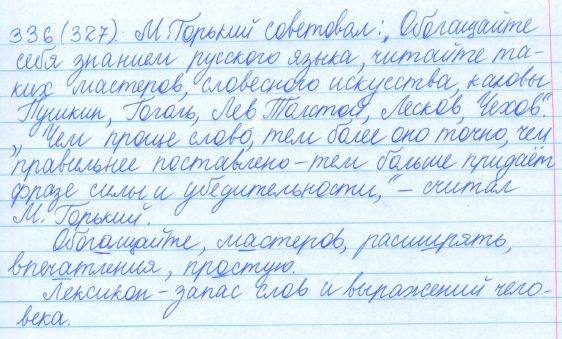 336(327). М. Горький советовал: „Обогащайте
себя знанием русского языка, читайте та-
ких мастеров словесного искусства, каковы
Пушкин, Гоголь, Лев Толстой, Лесков, Чехов".
„Чем проще слово, тем более оно точно, чем
правильнее поставлено – тем больше придаёт
фразе силы и убедительности," – считал
М. Горький.
Обогащайте, мастеров, расширять,
впечатления, простую.
Лексикон – запас слов и выражений чело-
века.